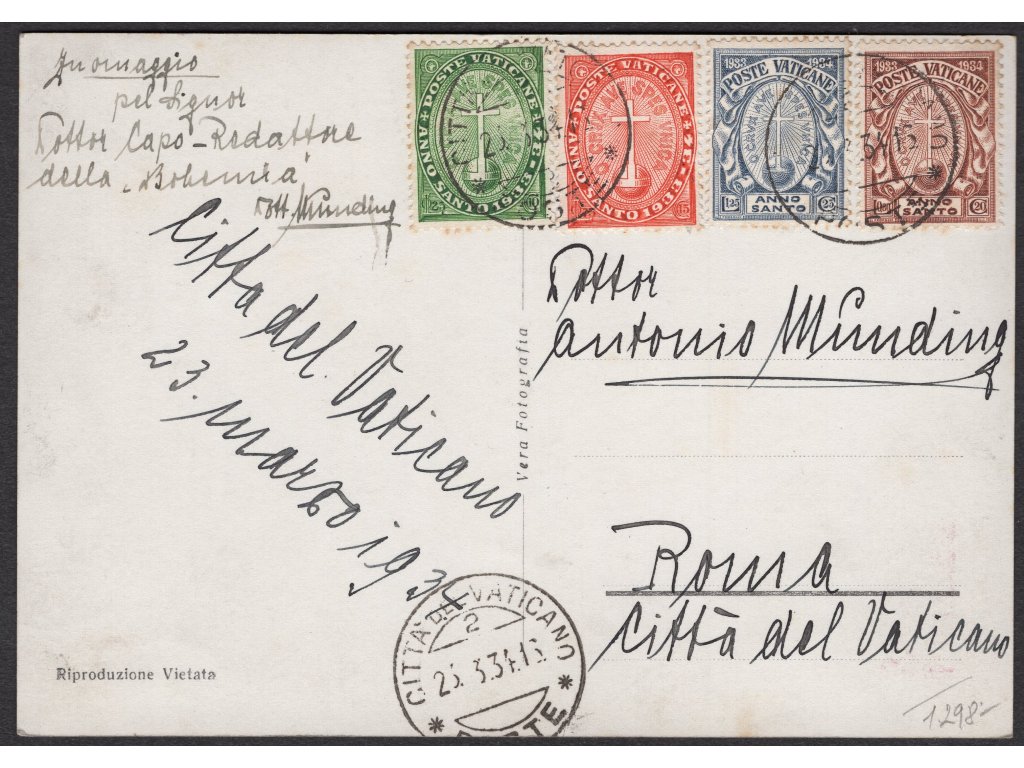 In omaggio
pel Signor
Dottor Capo-Redattore
della „Bohemia"
Dott. Munding
Città del Vaticano
23. marzo 1934
POSTE VATICANE
ANNO SANTO 1933-34
25
POSTE VATICANE
ANNO SANTO 1933-34
15
1933 1934
POSTE VATICANE
O CRVX AVE SPES VNICA
1.25 ANNO SANTO C.25
1933 1934
POSTE VATICANE
ANNO SANTO C.20
Dottor
Antonio Munding
Roma
Città del Vaticano
Vera Fotografia
Riproduzione Vietata
CITTÀ DEL VATICANO
2
23.3.34.13
POSTE
1298-